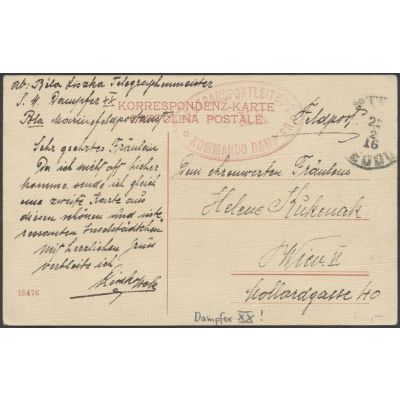 ab: Béla Liszka Telegraphenmeister
S. M. Dampfer XX
Pola Marinefeldpostamt
KORRESPONDENZ-KARTE
CAROLINA POSTALE
TRANSPORTLEITUNG
KOMMANDO DAMPFER
Feldpost
2
16
Sehr geehrtes Fräulein
Da ich nicht oft hieher
komme, sende ich gleich
eine zweite Karte aus
diesem schönen und inte-
ressanten Inselstädtchen
Mit herzlichem Gruß
verbleibe ich
Dem ehrenwerten Fräulein
Helene Kukenak
Wien VI
Mollardgasse 40
15476
Dampfer XX!